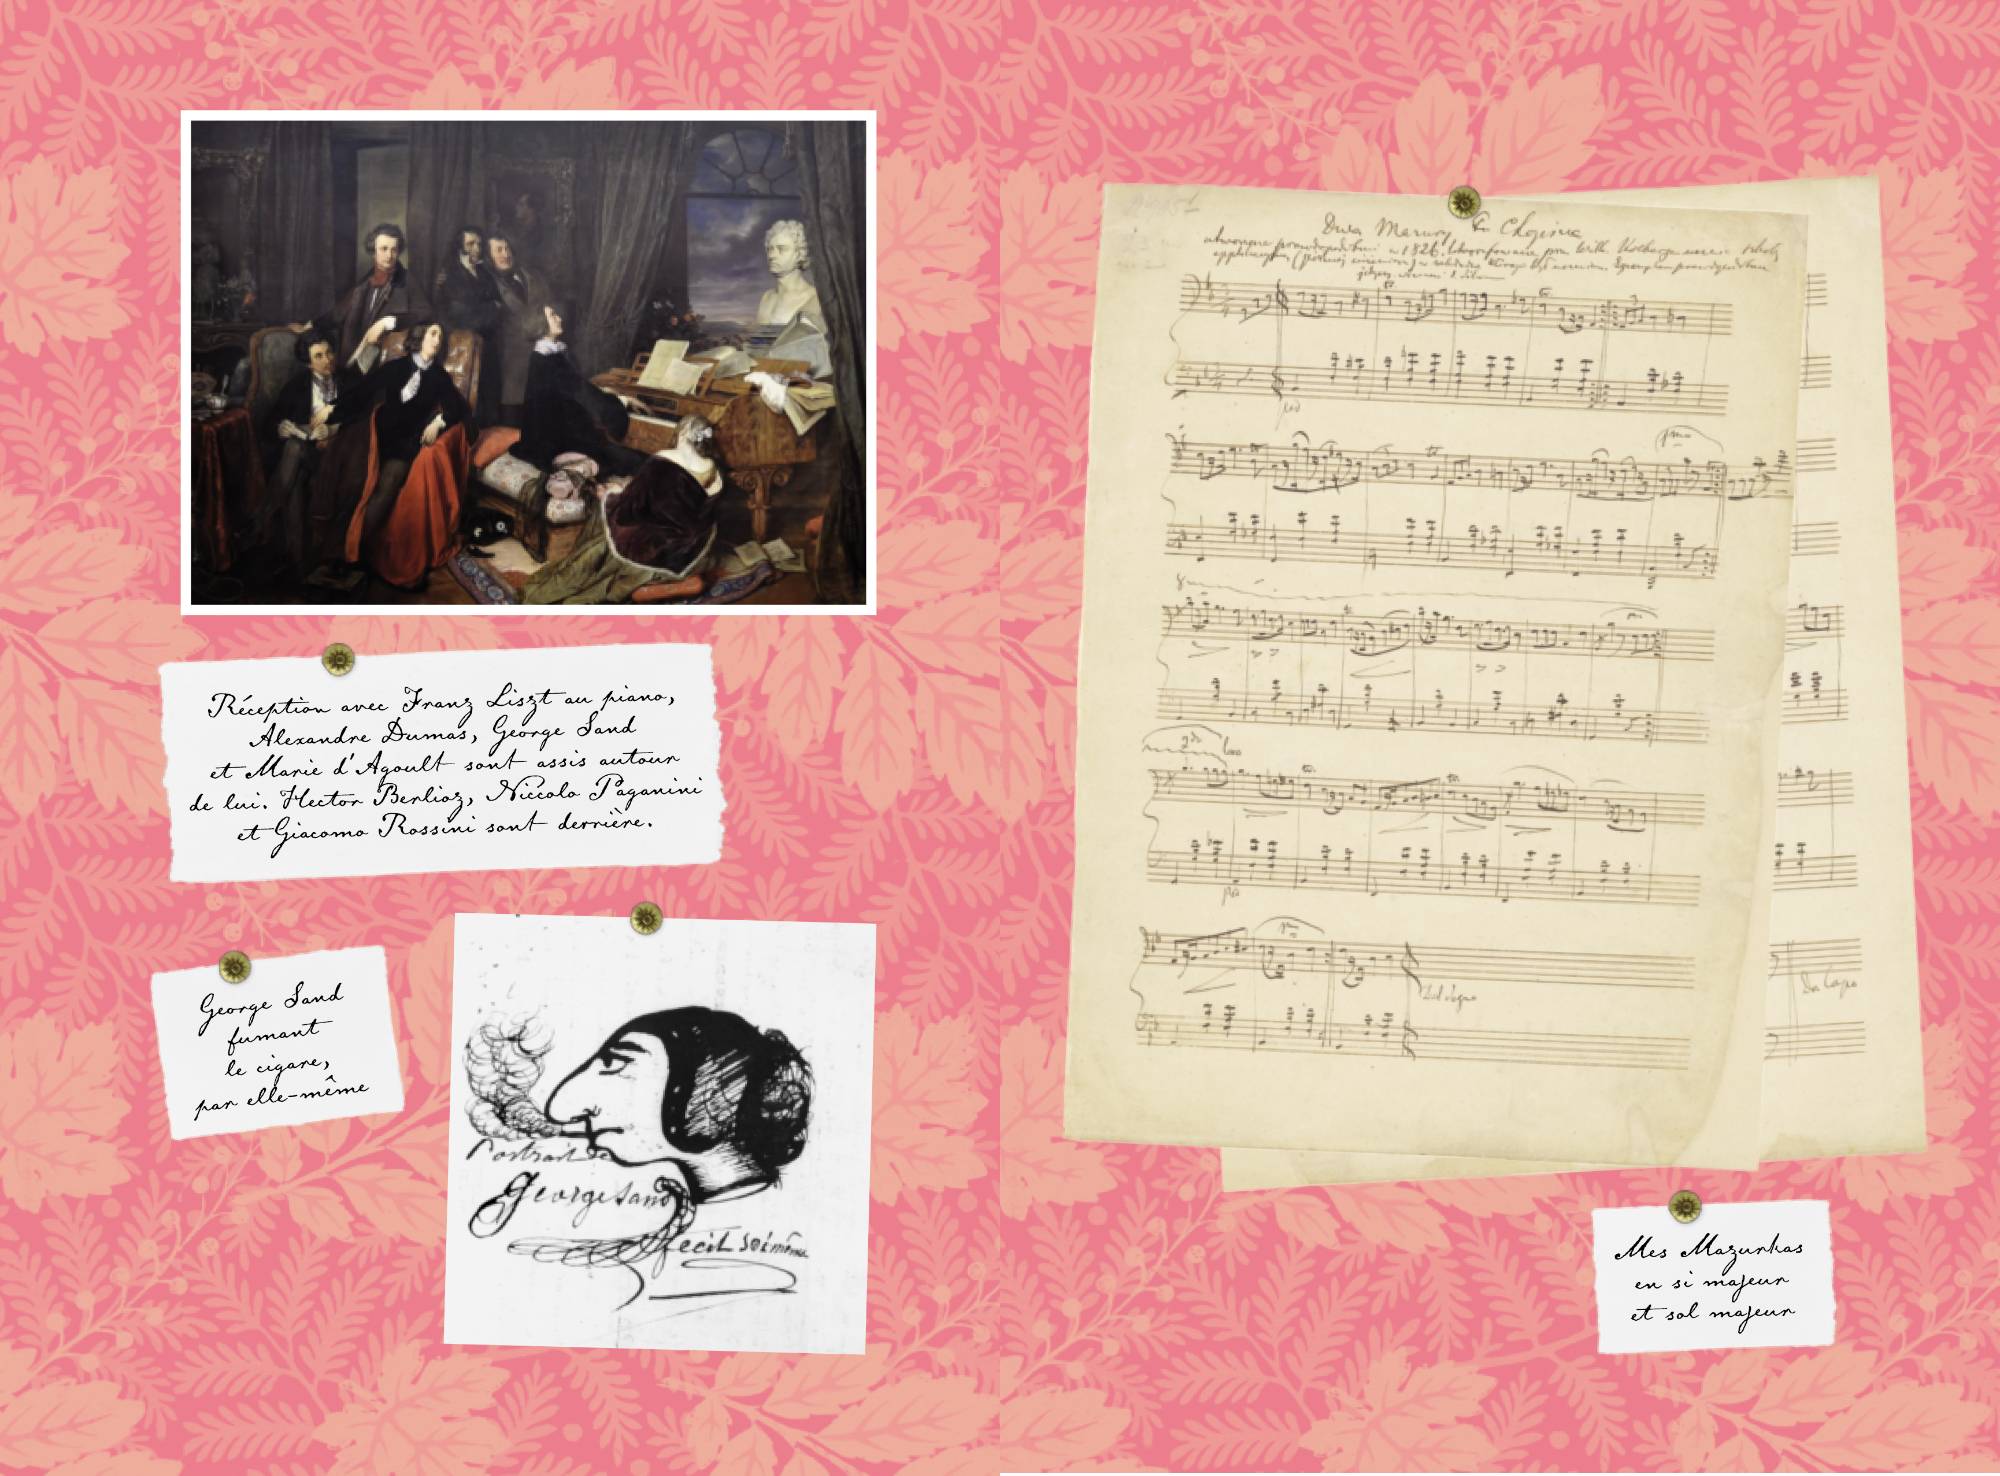 Réception avec Franz Liszt au piano,
Alexandre Dumas, George Sand
et Marie d'Agoult sont assis autour
de lui. Hector Berlioz, Niccolo Paganini
et Giacomo Rossini sont derrière.
George Sand
fumant
le cigare,
par elle-même
Portrait de
George Sand
fecit soi même
Dwa Mazury Chopina
w 1826
Dal segno
Da Capo
Mes Mazurkas
en si majeur
et sol majeur